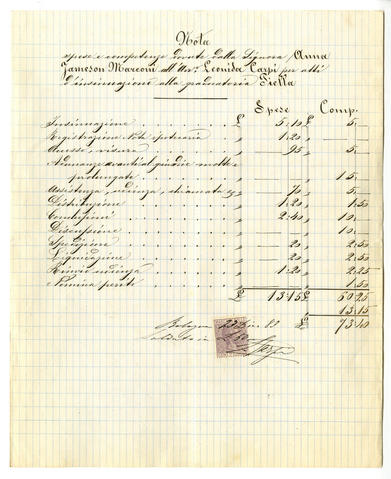 Nota
spese e competenze dovute dalla Signora Anna
Jameson Marconi all'Avv. Leonida Carpi per atti
d'insinuazione alla graduatoria Fiella
Spese Comp.
Insinuazione £ 5.10 £ 5.
Registrazione 1.20
Accesso, visura 95 5.
Adunanza avanti al giudice molto
prolungate 15.
Assistenza, udienza, chiamata 70 5.
Distribuzione 1.20 1.50
Conclusione 2.40 10.
Discussione 10.
Spedizione 20 2.50
Liquidazione 20 2.50
Rinvio udienza 1.20 2.25
Nomina perito 1.50
£ 13.15 £ 60.25
13.15
£ 73.40
Bologna 23 88
Saldato in